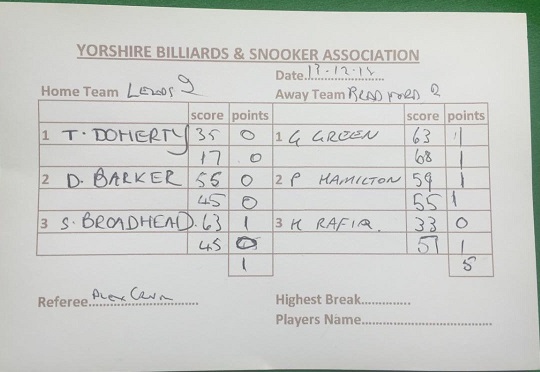 YORKSHIRE BILLIARDS & SNOOKER ASSOCIATION
Date..
Home Team LEEDS 2 Away Team BRADFORD 2
score points score points
1 T. DOHERTY 35 0 1 G GREEN 63 1
17 0 68 1
2 D. BARKER 56 0 2 P HAMILTON 59 1
45 0 55 1
3 S. BROADHEAD. 63 1 3 K RAFIQ. 33 0
45 0 57 1
1 5
Referee Highest Break..............
Players Name.....................................